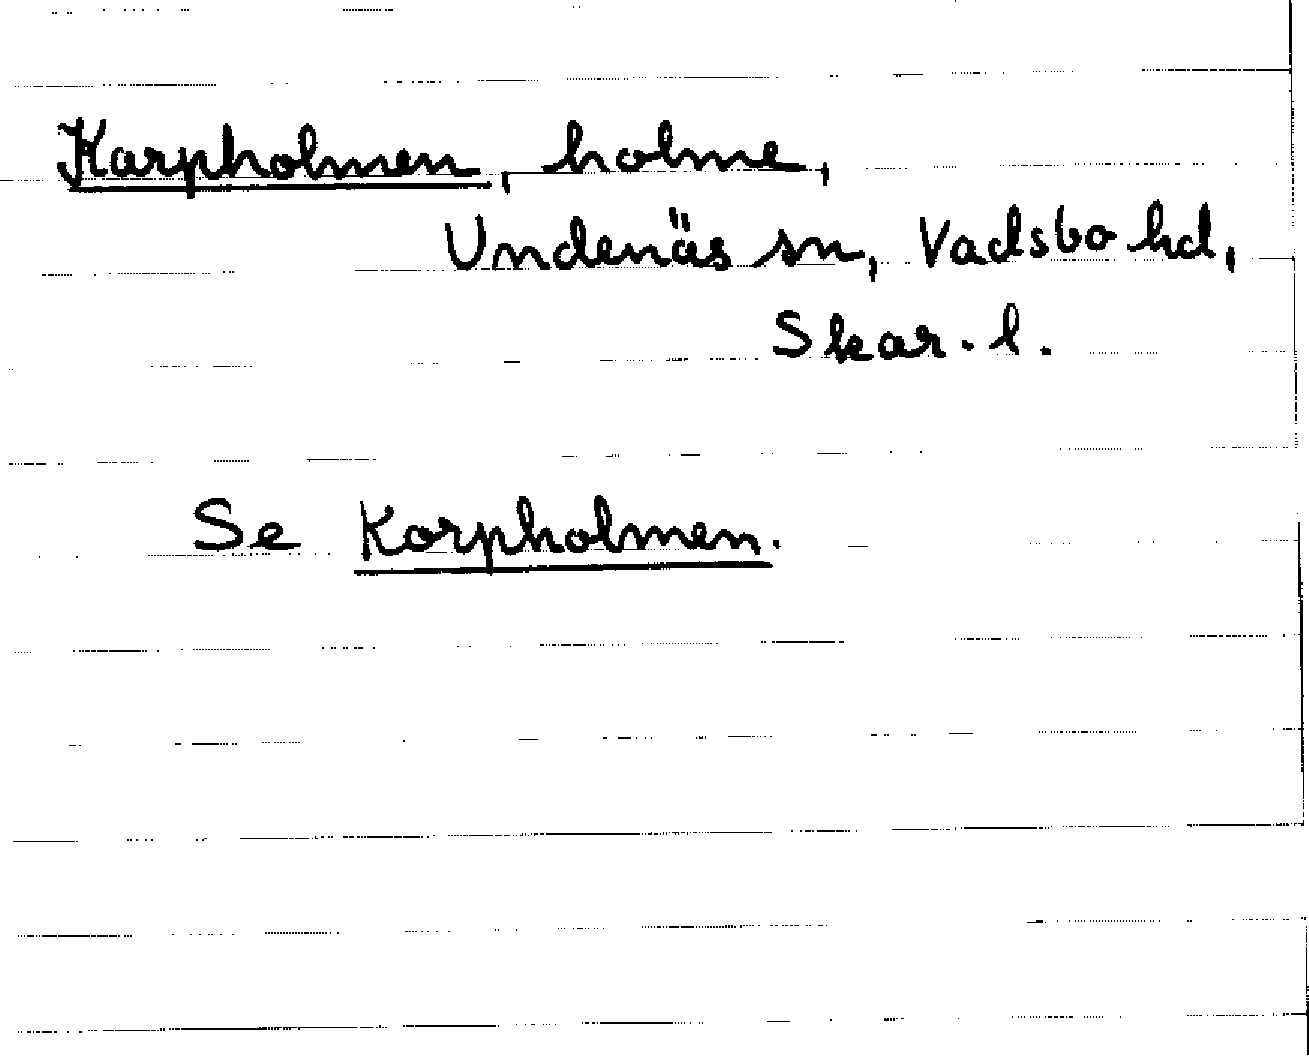 Karpholmen, holme,
Undenäs sn, Vadsbo hd,
Skar. l.
Se Korpholmen.